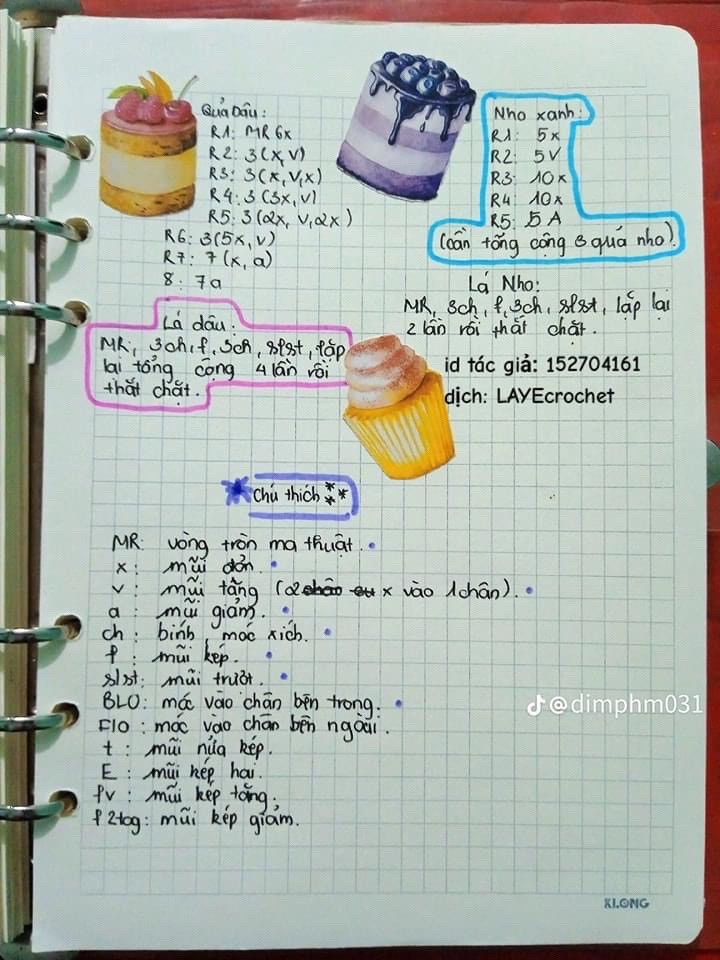 Quả Dâu:
R1: MR 6x
R2: 3(x, v)
R3: 3(x, v, x)
R4: 3(3x, v)
R5: 3(2x, v, 2x)
R6: 3(5x, v)
R7: 7(x, a)
8: 7a
Nho xanh:
R1: 5x
R2: 5V
R3: 10x
R4: 10x
R5: 5A
(cần tổng cộng 3 quả nho).
Lá Nho:
MR, 3ch, f, 3ch, slst, lặp lại
2 lần rồi thắt chặt.
Lá dâu:
MR, 3ch, f, 3ch, slst, lặp
lại tổng cộng 4 lần rồi
thắt chặt.
id tác giả: 152704161
dịch: LAYEcrochet
* Chú thích ***
MR: vòng tròn ma thuật.
x: mũi đơn.
v: mũi tăng (2 x vào 1 chân).
a: mũi giảm.
ch: bính, móc xích.
f: mũi kép.
slst: mũi trượt.
BLO: móc vào chân bên trong.
FlO: móc vào chân bên ngoài.
t: mũi nửa kép.
E: mũi kép hai.
fv: mũi kép tăng.
f 2tog: mũi kép giảm.
@dimphm031
KLONG